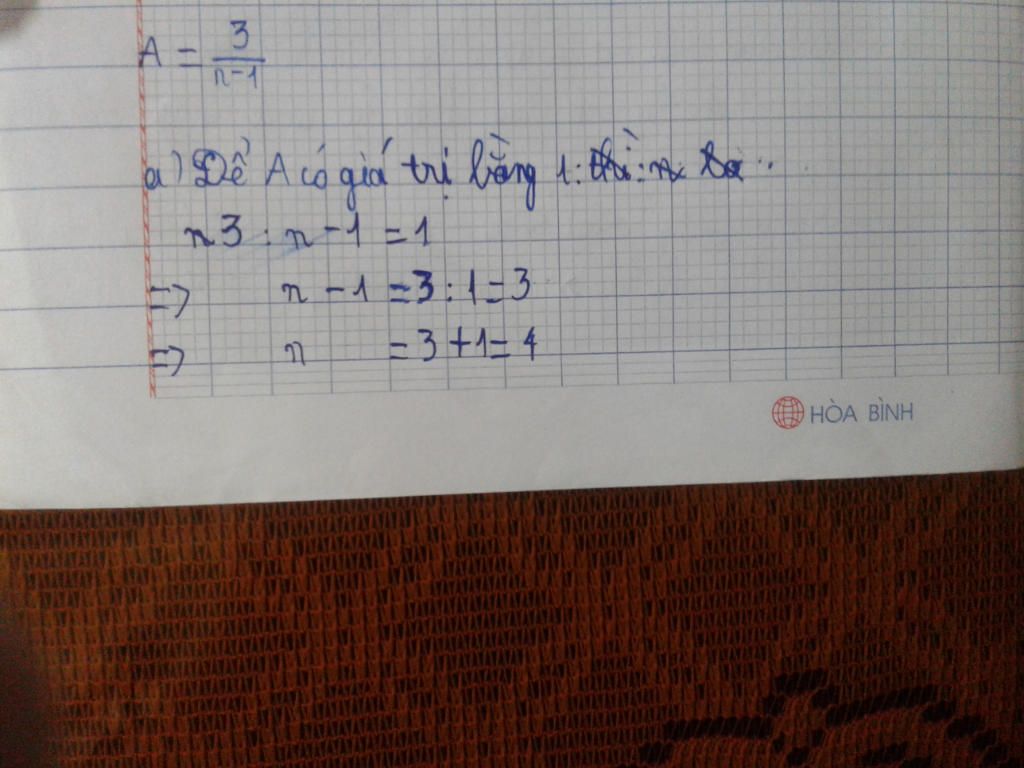 A = 3/(n-1)
a) Để A có giá trị bằng 1:
3 : n - 1 = 1
=> n - 1 = 3 : 1 = 3
=> n = 3 + 1 = 4
HÒA BÌNH